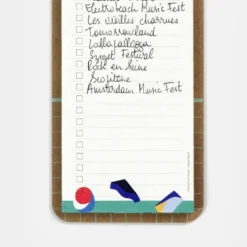 Electrobeach Music Fest
Les vieilles charrues
Tomorrowland
Lollapallooza
Sziget Festival
Rock en Seine
Amsterdam Music Fest